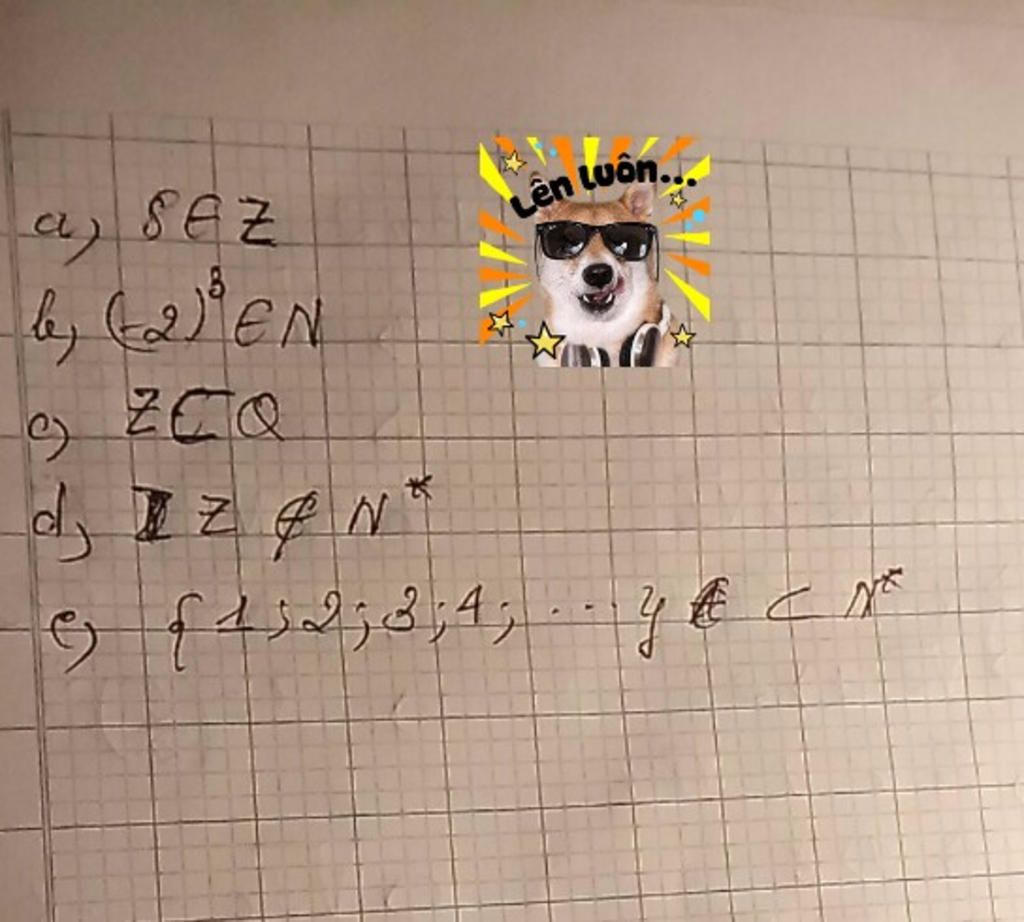 Lên luôn...
a, 8 ∈ Z
b, (-2)³ ∈ N
c) Z ⊂ Q
d, Z ⊄ N*
e, {1; 2; 3; 4; ...} ⊂ N*